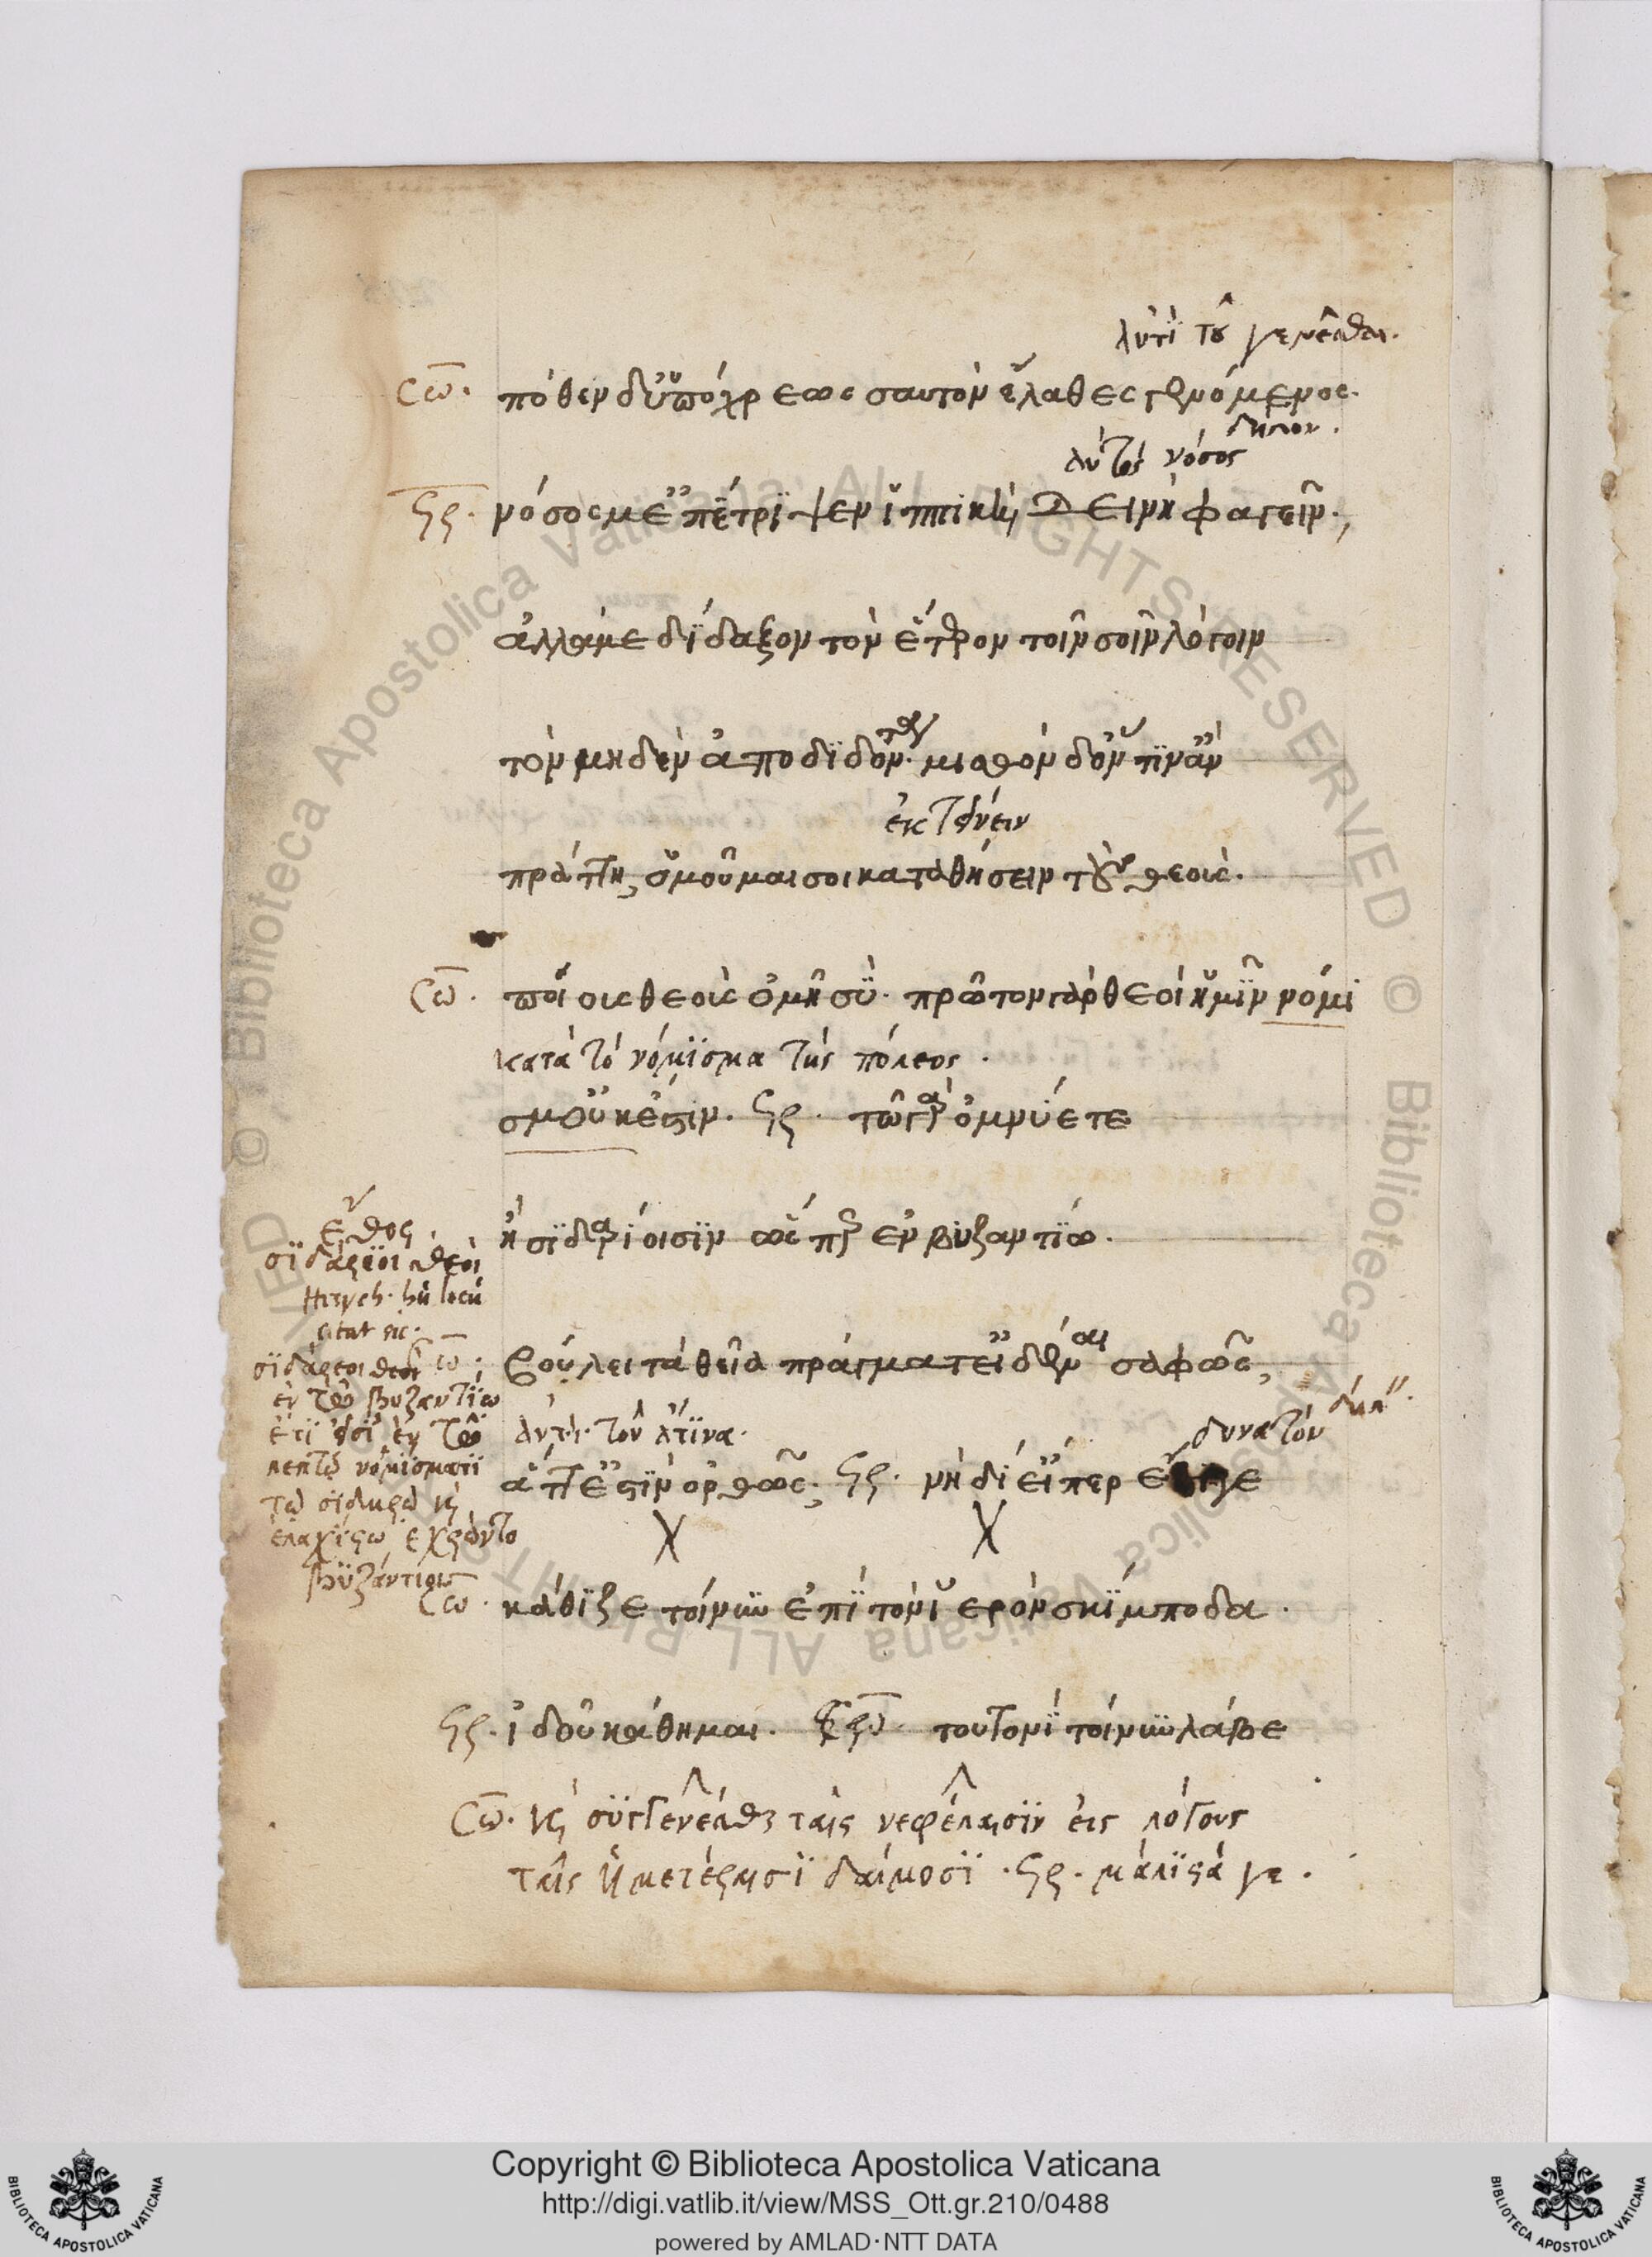 ἀντὶ τοῦ γενέσθαι.
Σω. πόθεν δ' ὑπόχρεως σαυτὸν ἔλαθες γενόμενος.
δεινόν.
αὐτὸς νόσος
Στρ. νόσος μ' ἐπέτριψεν ἱππικὴ δεινὴ φαγεῖν.,
ἀλλά με δίδαξον τὸν ἕτερον τοῖν σοῖν λόγοιν
τὸν μηδὲν ἀποδιδόντα. μισθὸν δ' ὅντιν' ἂν
ἐκτίνειν
πράττῃ, ὀμοῦμαί σοι καταθήσειν τοὺς θεούς.
Σω. ποίοις θεοῖς ὀμῇ σύ. πρῶτον γὰρ θεοὶ ἡμῖν νόμι
κατὰ τὸ νόμισμα τῆς πόλεος.
σμ' οὐκ ἔστιν. Στρ. τῷ γὰρ ὄμνύετε
ἢ σιδαρέοισιν ὥσπερ ἐν βυζαντίῳ.
σιδάρεοι θεοὶ
Hesych.
citat sic.
σιδάρεοι θεοὶ
ἐν τῷ Βυζαντίῳ
ἔτι εἰσὶ ἐν τῷ
λεπτῷ νομίσματι
τῷ σιδηρῷ καὶ
ἐλαχίστῳ ἐχρῶντο
Βυζάντιοι
Σω. βούλει τὰ θεῖα πράγματ' εἰδέναι σαφῶς,
ἀντὶ τοῦ ἅτινα.
δυνατόν
ἅττ' ἐστὶν ὀρθῶς; Στρ. νὴ δί' εἴπερ ἔστι γε
Σω. κάθιζε τοίνυν ἐπὶ τὸν ἱερὸν σκίμποδα.
Στρ. ἰδοὺ κάθημαι. Σω. τουτονὶ τοίνυν λάβε
Σω. καὶ συγγενέσθαι ταῖς νεφέλαισιν εἰς λόγους
ταῖς ἡμετέραισι δαίμοσι. Στρ. μάλιστά γε.
Copyright © Biblioteca Apostolica Vaticana
http://digi.vatlib.it/view/MSS_Ott.gr.210/0488
powered by AMLAD·NTT DATA